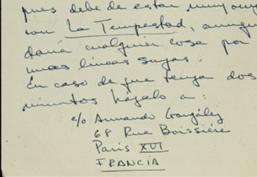 pues debe de estar muy
con La Tempestad, aunque
daría cualquier cosa por
unas líneas suyas.
En caso de que tenga dos
minutos hágalo a:
c/o Armando González
68 Rue Boissière
Paris XVI
FRANCIA